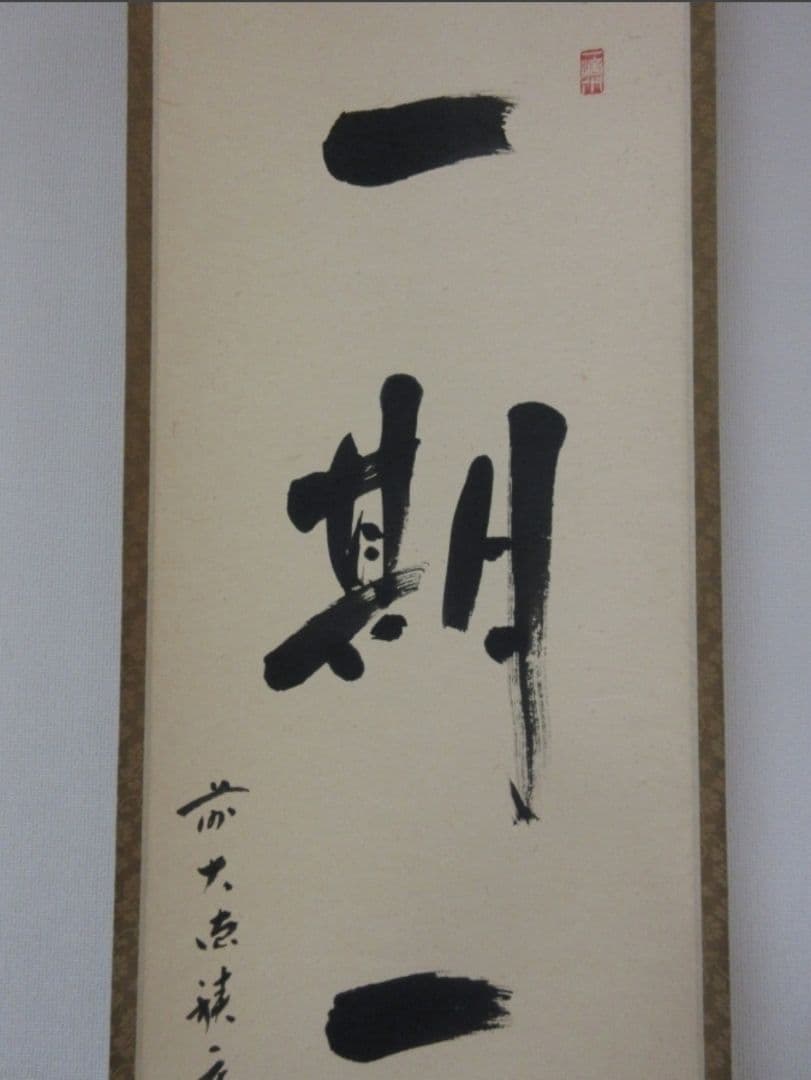 一期一
前大徳